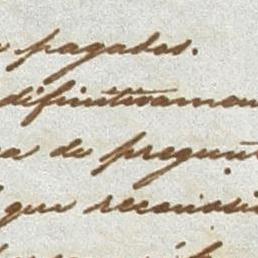 pagados.
difinitivamen
de pregun
que reconosi